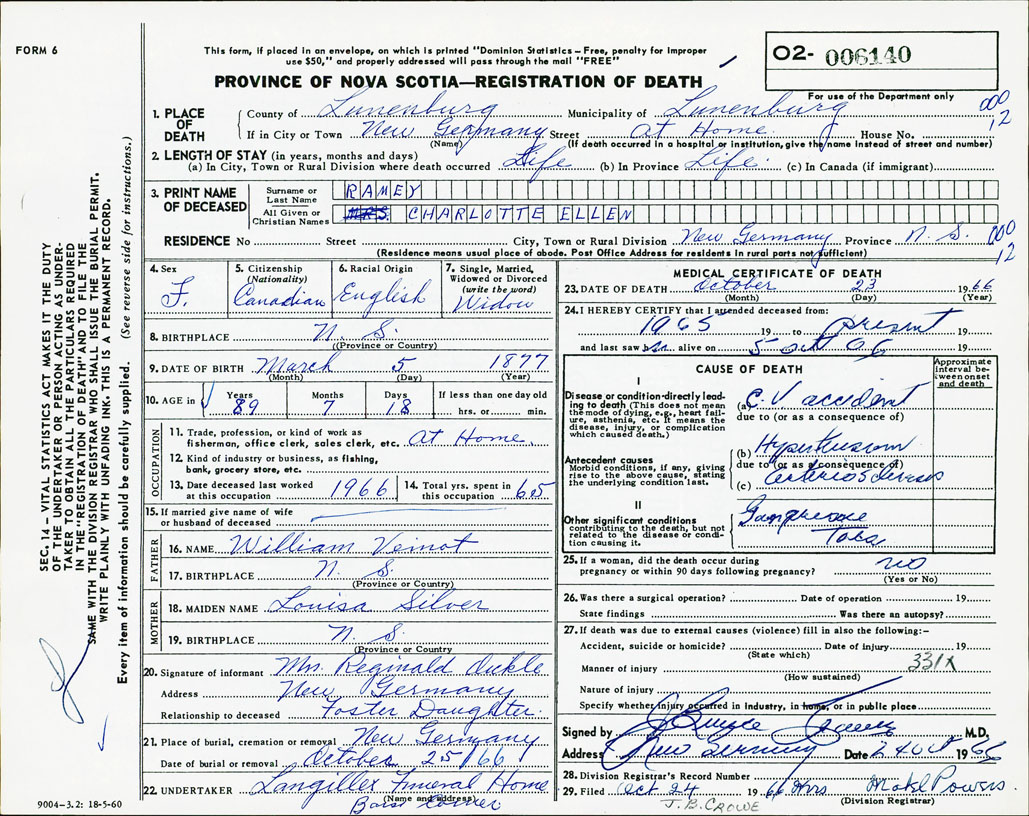 FORM 6
This form, if placed in an envelope, on which is printed "Dominion Statistics – Free, penalty for improper
use $50," and properly addressed will pass through the mail "FREE"
PROVINCE OF NOVA SCOTIA—REGISTRATION OF DEATH
02- 006140
For use of the Department only
000
12
1. PLACE OF DEATH
County of Lunenburg Municipality of Lunenburg
If in City or Town New Germany Street At Home House No.
(Name) (If death occurred in a hospital or institution, give the name instead of street and number)
2. LENGTH OF STAY (in years, months and days)
(a) In City, Town or Rural Division where death occurred Life (b) In Province Life. (c) In Canada (if immigrant)
3. PRINT NAME OF DECEASED
Surname or Last Name RAMEY
All Given or Christian Names MRS CHARLOTTE ELLEN
RESIDENCE No Street City, Town or Rural Division New Germany Province N. S. 000
12
(Residence means usual place of abode. Post Office Address for residents in rural parts not sufficient)
4. Sex F.
5. Citizenship (Nationality) Canadian
6. Racial Origin English
7. Single, Married, Widowed or Divorced (write the word) Widow
8. BIRTHPLACE N. S.
(Province or Country)
9. DATE OF BIRTH March 5 1877
(Month) (Day) (Year)
10. AGE in Years 89 Months 7 Days 18 If less than one day old
hrs. or min.
OCCUPATION
11. Trade, profession, or kind of work as
fisherman, office clerk, sales clerk, etc. At Home.
12. Kind of industry or business, as fishing,
bank, grocery store, etc.
13. Date deceased last worked
at this occupation 1966
14. Total yrs. spent in
this occupation 65
15. If married give name of wife
or husband of deceased
FATHER
16. NAME William Veinot
17. BIRTHPLACE N. S.
(Province or Country)
MOTHER
18. MAIDEN NAME Louisa Silver
19. BIRTHPLACE N. S.
(Province or Country)
20. Signature of informant Mrs. Reginald
Address New Germany
Relationship to deceased Foster Daughter.
21. Place of burial, cremation or removal New Germany
Date of burial or removal October 25/66
22. UNDERTAKER Langilles Funeral Home
(Name and address)
Corner
9004-3.2: 18-5-60
MEDICAL CERTIFICATE OF DEATH
23. DATE OF DEATH October 23 1966
(Month) (Day) (Year)
24. I HEREBY CERTIFY that I attended deceased from:
1965 19 to present 19
and last saw h alive on 5 Oct 66 19
CAUSE OF DEATH
Approximate interval between onset and death
I
Disease or condition directly leading to death (This does not mean the mode of dying, e.g., heart failure, asthenia, etc. It means the disease, injury, or complication which caused death.)
(a) C.V accident
due to (or as a consequence of)
Antecedent causes
Morbid conditions, if any, giving rise to the above cause, stating the underlying condition last.
(b) Hypertension
due to (or as a consequence of)
(c) Arteriosclerosis
II
Other significant conditions
contributing to the death, but not related to the disease or condition causing it.
Gangrene
Toes
25. If a woman, did the death occur during
pregnancy or within 90 days following pregnancy? no
(Yes or No)
26. Was there a surgical operation? Date of operation 19
State findings Was there an autopsy?
27. If death was due to external causes (violence) fill in also the following:–
Accident, suicide or homicide? Date of injury 19
(State which)
Manner of injury 331X
(How sustained)
Nature of injury
Specify whether injury occurred in industry, in home, or in public place
Signed by M.D.
Address New Germany Date 24 Oct 1966
28. Division Registrar's Record Number
29. Filed Oct 24 1966 Mrs Powers
(Division Registrar)
J. B. CROWE
SEC. 14 – VITAL STATISTICS ACT MAKES IT THE DUTY
OF THE UNDERTAKER OR PERSON ACTING AS UNDER-
TAKER TO OBTAIN ALL THE PARTICULARS REQUIRED
IN THE "REGISTRATION OF DEATH" AND TO FILE THE
SAME WITH THE DIVISION REGISTRAR WHO SHALL ISSUE THE BURIAL PERMIT.
WRITE PLAINLY WITH UNFADING INK. THIS IS A PERMANENT RECORD.
Every item of information should be carefully supplied. (See reverse side for instructions.)